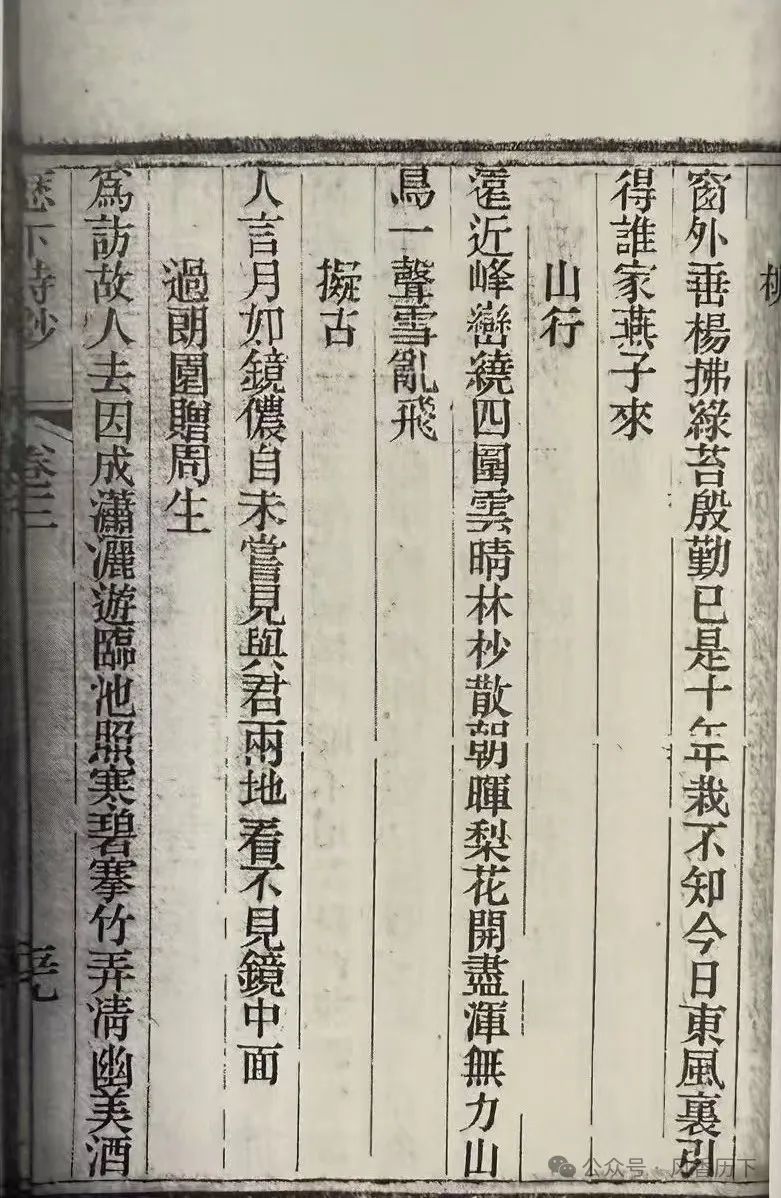 窗外垂楊拂綠苔殷勤已是十年栽不知今日東風裏引
得誰家燕子來
山行
遠近峰巒繞四圍雲晴林杪散朝暉梨花開盡渾無力山
鳥一聲雪亂飛
擬古
人言月如鏡儂自未嘗見與君兩地看不見鏡中面
過朗園贈周生
爲訪故人去因成瀟灑遊臨池照寒碧搴竹弄淸幽美酒
歷下詩鈔
卷三
公众号·风香历下